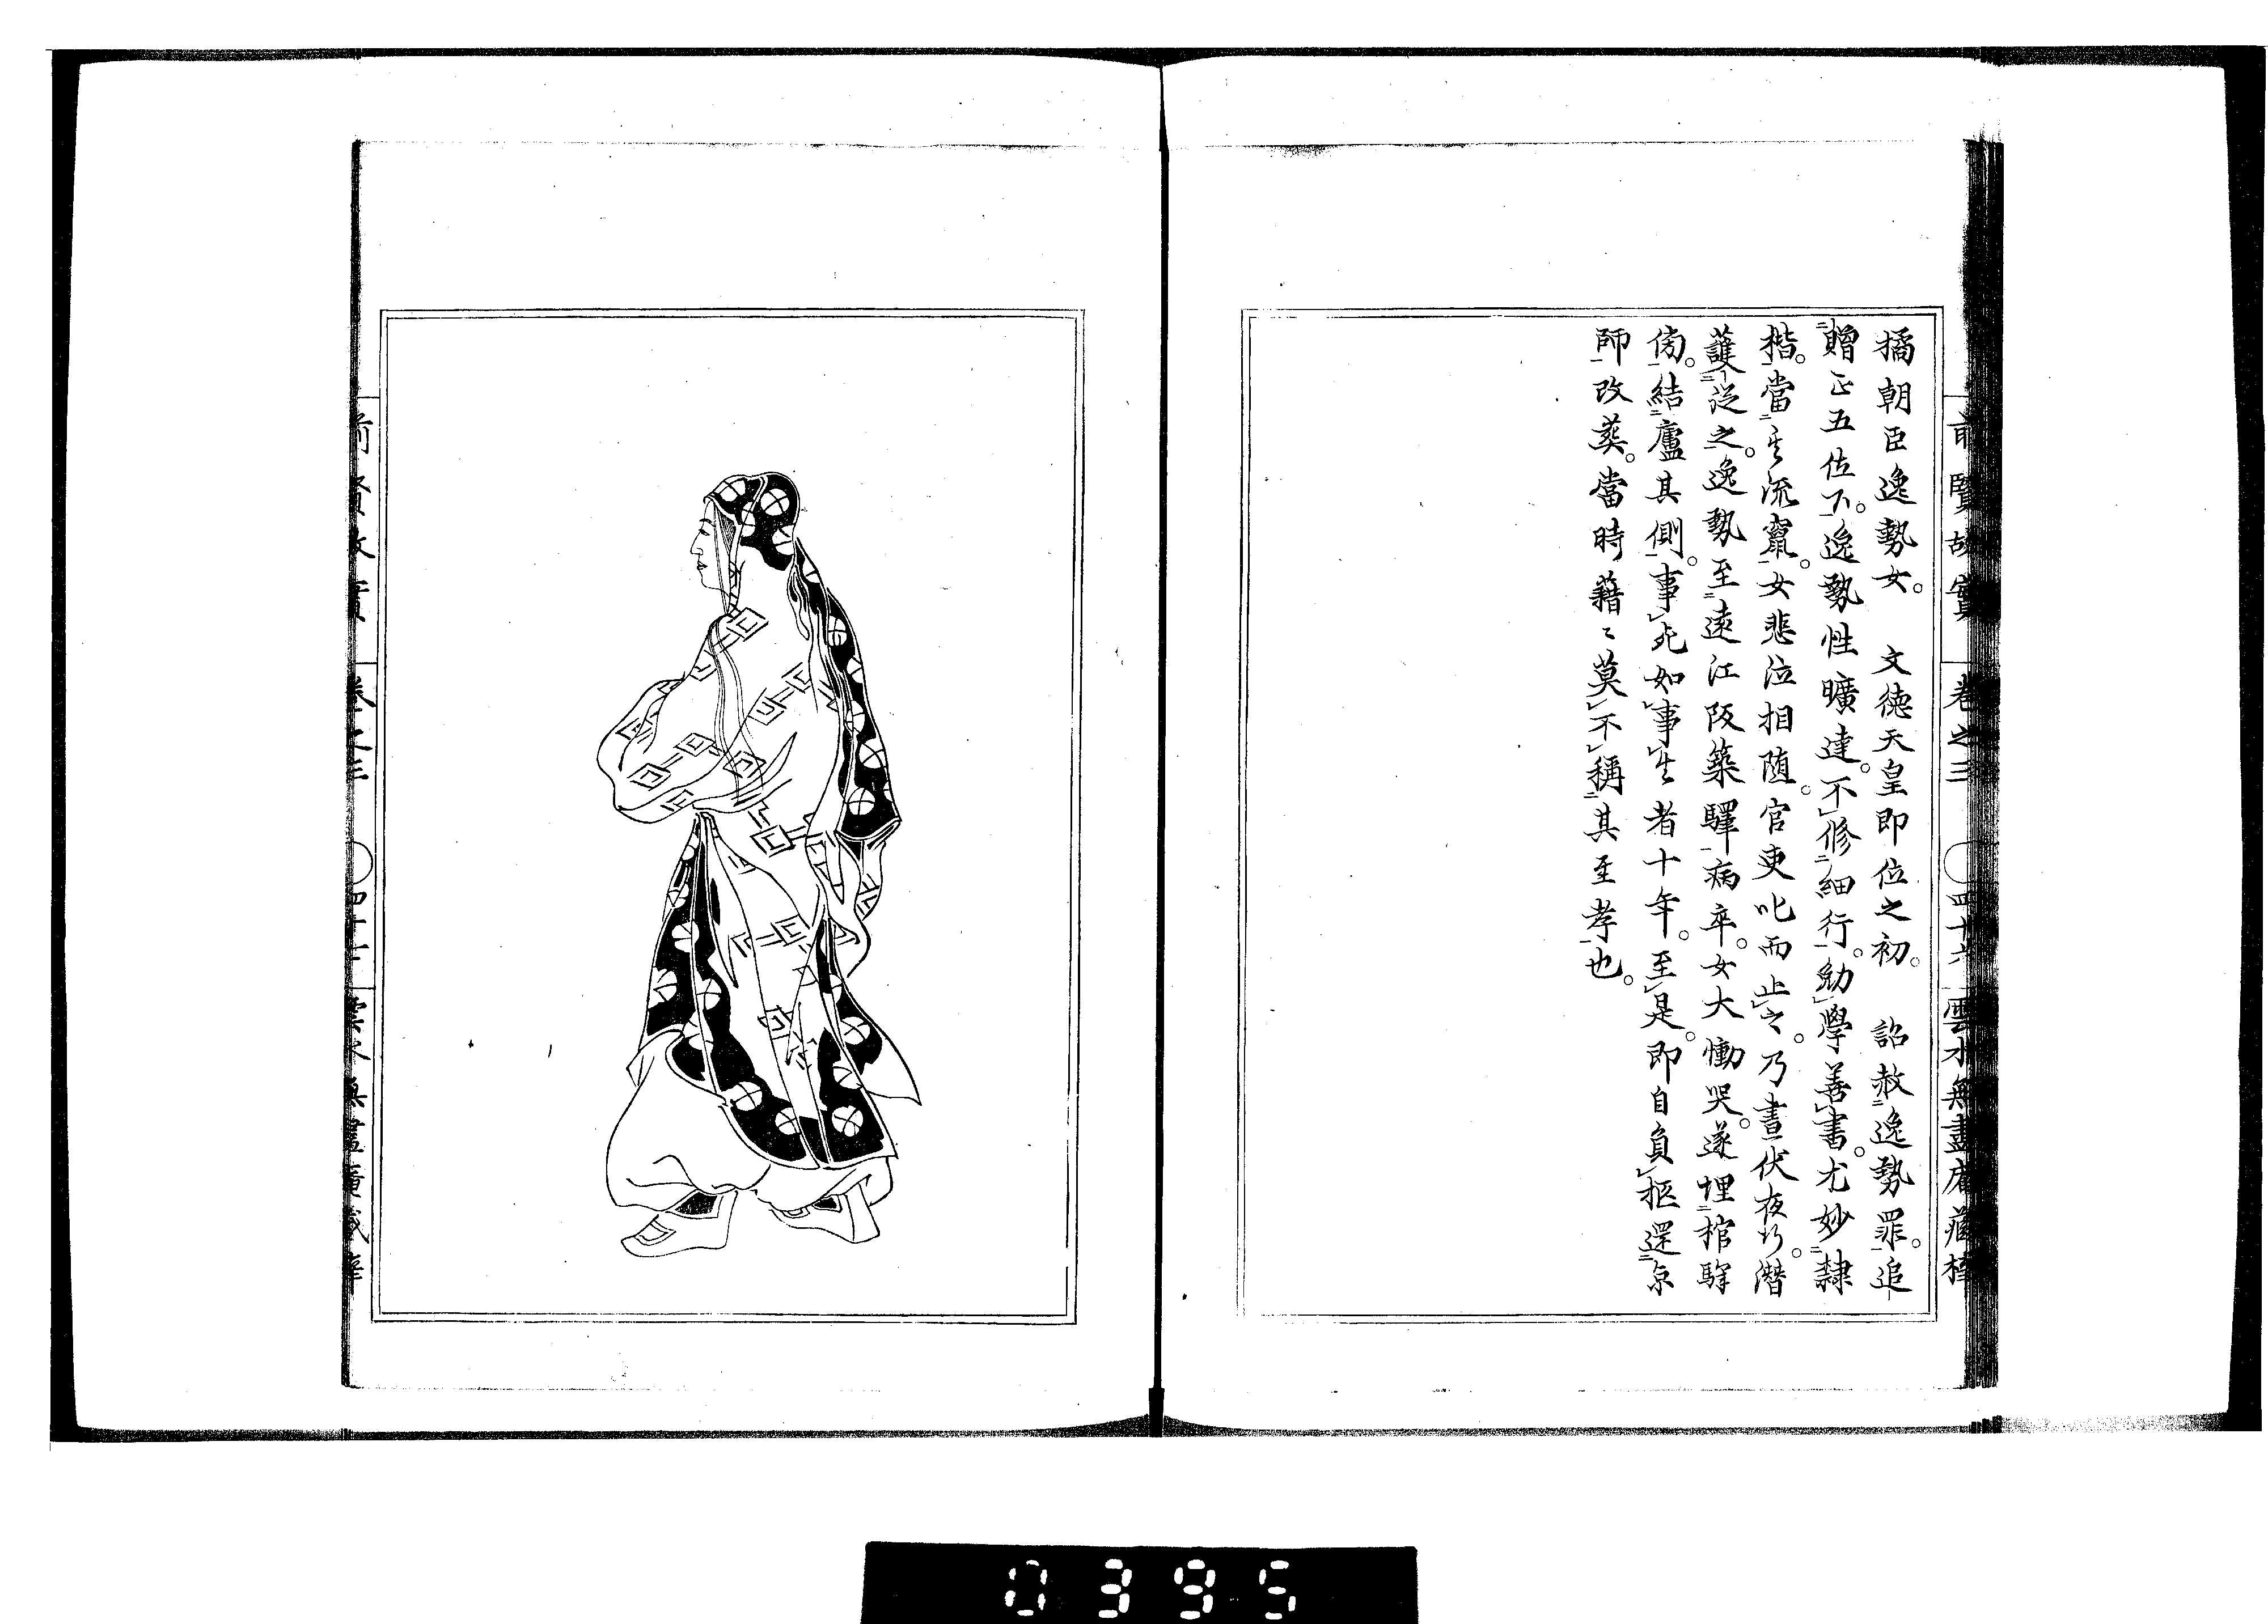 前賢故實 卷之三 四十六 雲水無盡庵藏梓
橘朝臣逸勢女。 文徳天皇即位之初。 詔赦逸勢罪。追
贈正五位下。逸勢性曠達。不修細行。勉學善書。尤妙隸
楷。當其流竄。女悲泣相随。官吏叱而止之。乃晝伏夜行。潛
護從之。逸勢至遠江阪築驛病卒。女大慟哭。遂埋棺驛
傍。結廬其側。事死如事生者十年。至是。即自負柩還京
師改葬。當時藉〻莫不稱其至孝也。
前賢故實 卷之三 四十七 雲水無盡庵藏梓
0395